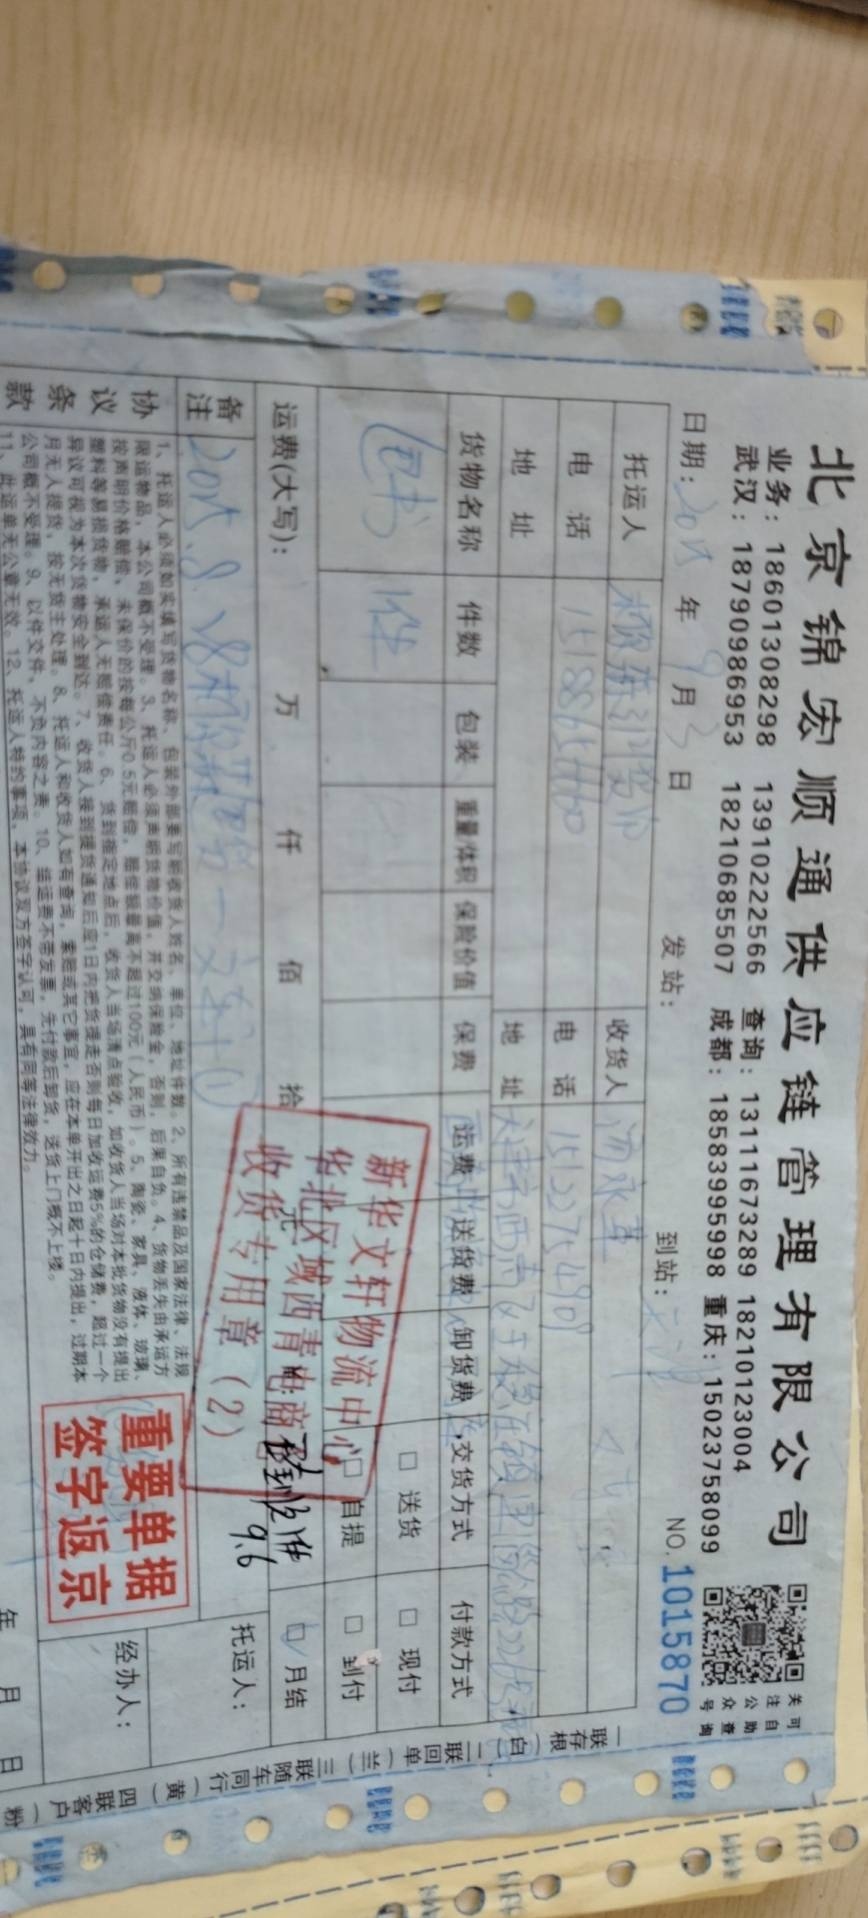 北京锦宏顺通供应链管理有限公司
业务：18601308298 13910222566 查询：13111673289 18210123004
武汉：18790986953 18210685507 成都：18583995998 重庆：15023758099
关注公众号
可自助查询
日期： 年9月3日 发站： 到站： NO.1015870
托运人 收货人
电话 电话 15122754909
地址 地址
货物名称 件数 包装 重量体积 保险价值 保费 运费 送货费 卸货费 交货方式 付款方式
图书 □送货 □现付
□自提 □到付
运费(大写)： 万 仟 佰 拾 元 □月结
备注
托运人：
新华文轩物流中心
华北区域西青电商
收货专用章（2）
收到1件
9.6
协议条款
1、托运人必须如实填写货物名称、包装外部要写明收货人姓名、单位、地址件数。2、所有违禁品及国家法律、法规
限运物品，本公司概不受理。3、托运人必须声明货物价值，并交纳保险金，否则，后果自负。4、货物丢失由承运方
按声明价格赔偿，未保价的按每公斤0.5元赔偿，赔偿额最高不超过100元（人民币）。5、陶瓷、家具、液体、玻璃、
塑料等易损货物，承运人无赔偿责任。6、货到指定地点后，收货人当场清点验收，如收货人当场对本批货物没有提出
异议可视为本次货物安全到达。7、收货人接到提货通知后应1日内把货提走否则每日加收运费5%的仓储费，超过一个
月无人提货，按无货主处理。8、托运人和收货人如有查询，索赔或其它事宜，应在本单开出之日起十日内提出，过期本
公司概不受理。9、以件交件，不负内容之责。10、此运费不带发票，先付款后卸货，送货上门概不上楼。
11、此运单无公章无效。12、托运人特约事项，本协议双方签字认可，具有同等法律效力。
重要单据
签字返京
经办人：
年 月 日
一联存根（白） 二联回单（兰） 三联随车同行（黄） 四联客户（粉